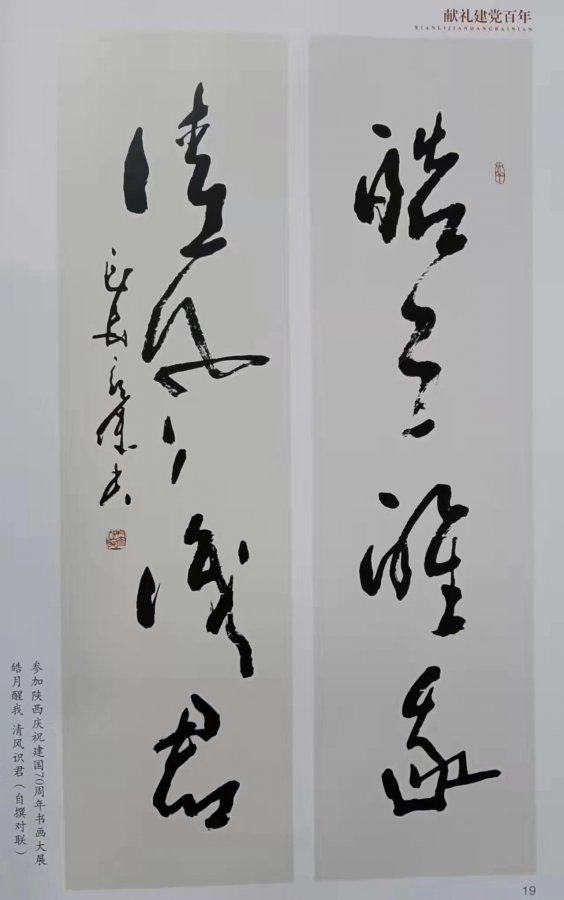 献礼建党百年
XIANLIJIANDANGBAINIAN
皓月醒我
清风识君
参加陕西庆祝建国70周年书画大展
皓月醒我 清风识君(自撰对联)
19